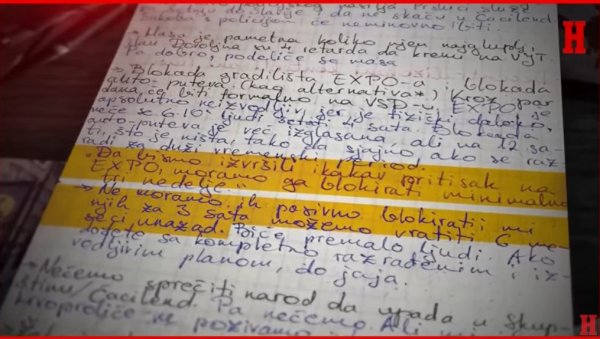 H
Žaboka s policijom će neminovno biti.
→ Masa je pametna koliko njen najgluplji
član. Dovoljna su 4 retarda da krenu na
dobro, podeliće se masa
→ Blokada gradilišta EXPO-a, blokada
auto-puteva (kao alternativa*). Kroz par
dana, će biti formalno na VSD-u, EXPO je
apsolutno neizvodljiv jer je fizički daleko,
neće se 6-10 ljudi šetati 4 sata. Blokada
auto-puteva je već izglasana ali na 12 sa-
ti, što je ništa, tako da sjajno ako se raz-
radi za duži vremenski period.
→ Da bismo izvršili ikakav pritisak na
EXPO, moramo ga blokirati minimalno
tri nedelje.
→ Ne moramo ih pasivno blokirati, mi
njih za 3 sata možemo vratiti 6 me-
seci unazad. Biće premalo ljudi. Ako
dođete sa kompletno razrađenim i iz-
vodljivim planom, do jaja.
→ Nećemo sprečiti narod da upada u Skup-
štinu/Ćacilend. Pa nećemo. Ali
krvoproliće ne pozivamo
H